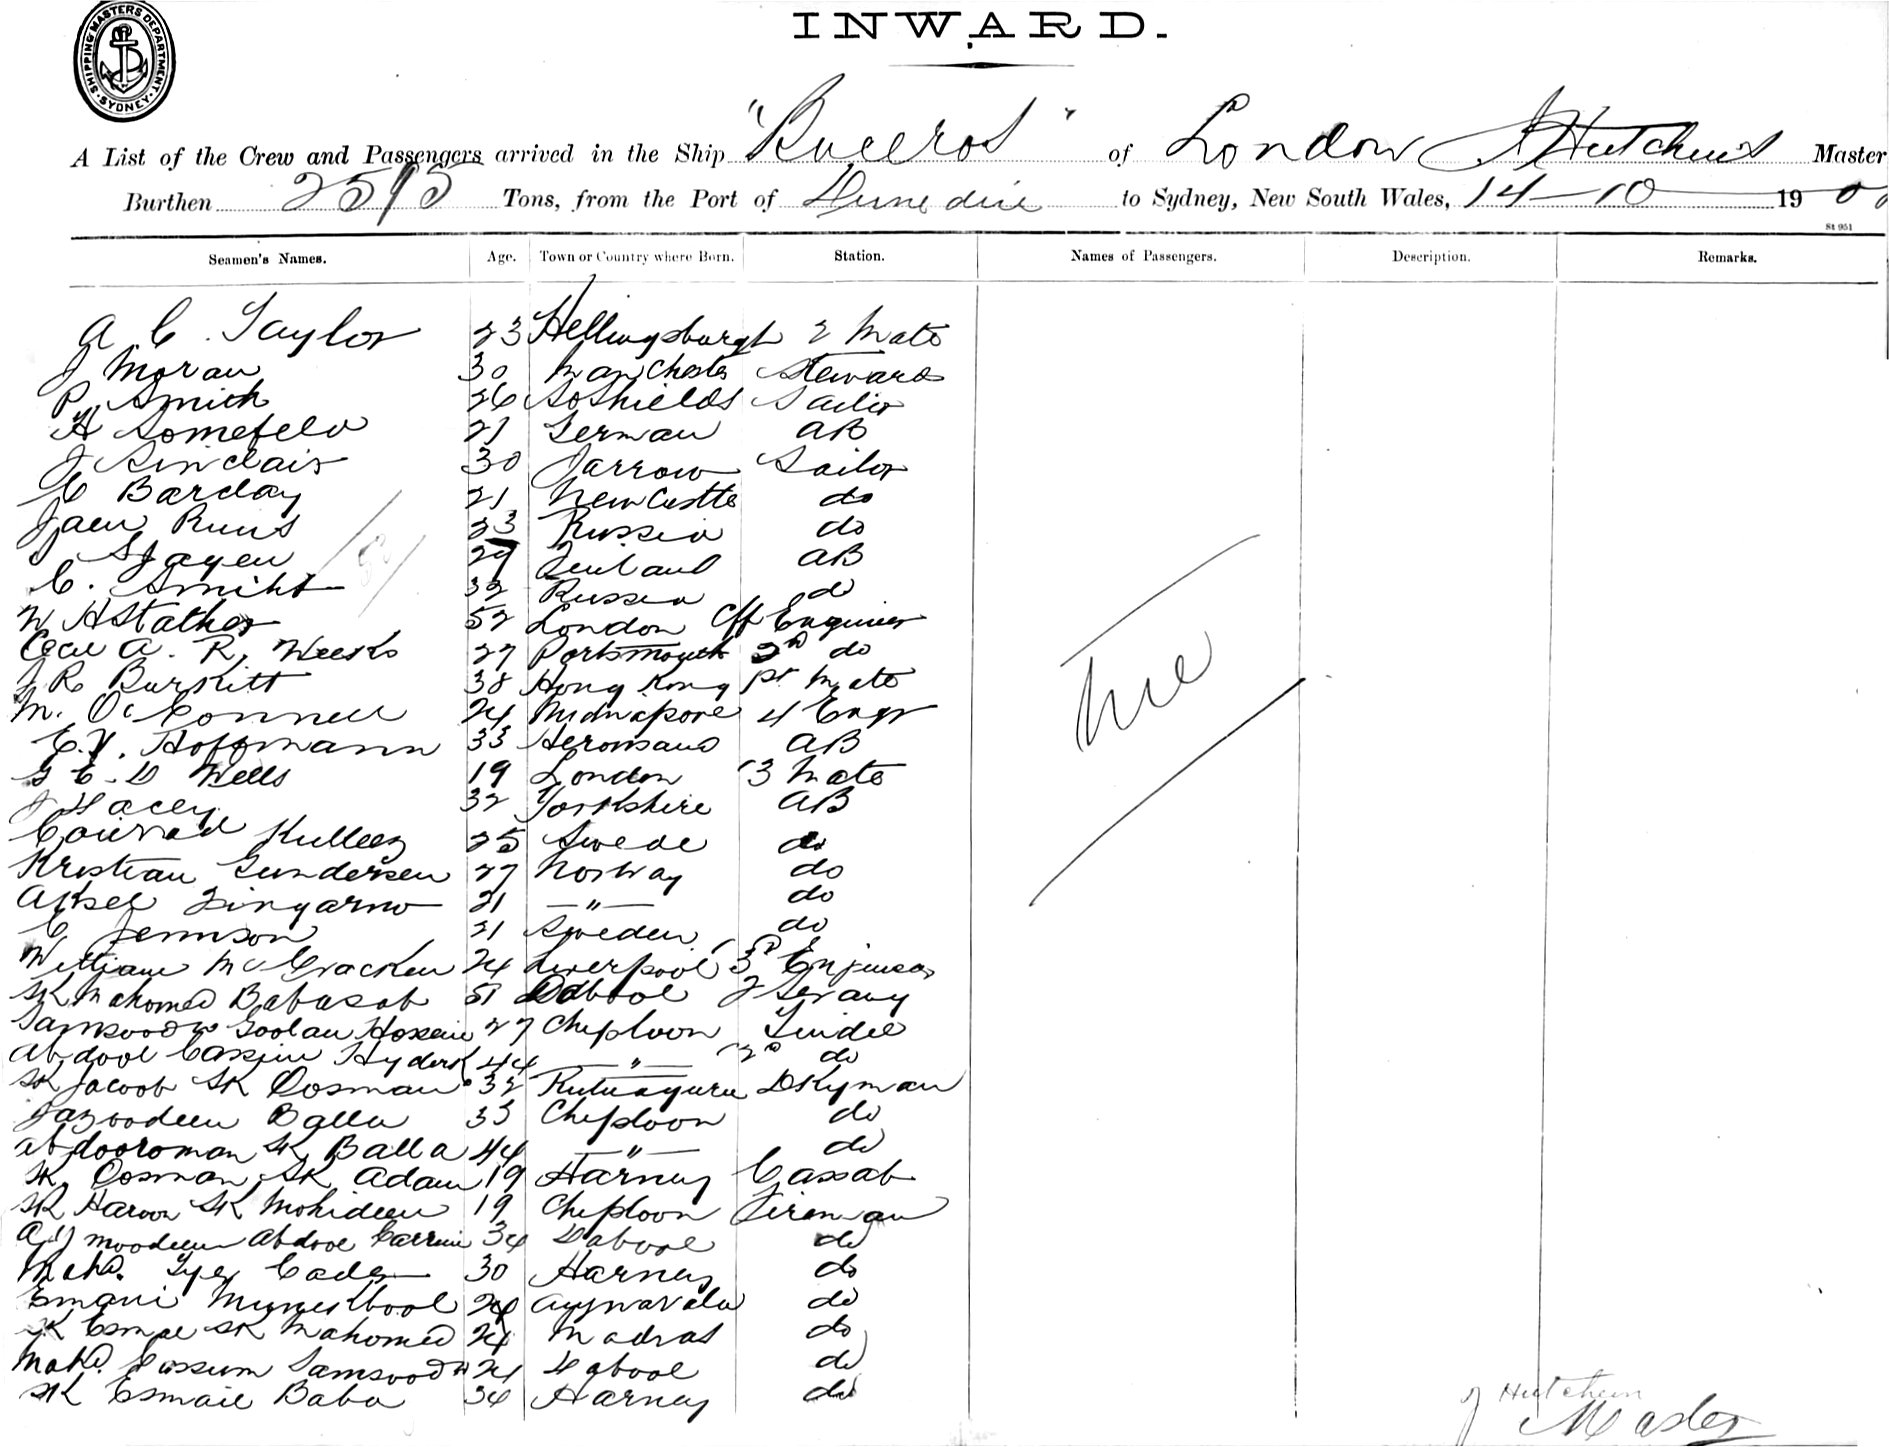 SHIPPING MASTERS DEPARTMENT SYDNEY
INWARD.
A List of the Crew and Passengers arrived in the Ship "Buceros" of London J Hutchins Master
Burthen Tons, from the Port of Dunedin to Sydney, New South Wales, 14-10 1900
St 951
Seamen's Names. Age. Town or Country where Born. Station. Names of Passengers. Description. Remarks.
A C. Taylor 23 Hellingsburgh 2 Mate
J Moran 30 Manchester Steward
P. Smith 26 So Shields Sailor
H Somefeld 21 German AB
J Sinclair 30 Jarrow Sailor
C Barclay 21 NewCastle do
23 Russia do
AB
C. Smiht 32 Russia do
W H Stather 52 London Cf Engineer
A. R. Weeks 27 Portsmouth 2nd do
J R Burkitt 38 Hong Kong 1st Mate
M. O'Connell 24 Midnapore 4 Engr
C.V. Hoffmann 33 AB
G E. D Wells 19 London 3 Mate
J Hacey 32 Yorkshire AB
Conrad 25 Swede do
Kristian Gundersen 27 Norway do
Aksel 21 " do
C Jennson 21 Sweden do
William McCracken 24 Liverpool 3rd
SK Mahomed Babasab 51 Dabool
Goolam Hossein 27 Cheploon Tindel
Abdool Cassim 44 " 2nd do
SK Jacoob SK Oosman 32
Balla 33 Cheploon do
Abdooroman SK Balla 44 " do
SK Oosman SK Adam 19 Harney Cassab
SK Haroon SK Mohideen 19 Cheploon Fireman
Abdool Carrim 34 Dabool do
Mahd. 30 Harney do
24 do
SK Esmae SK Mahomed 24 Madras do
Mahd. Cossum 24 Dabool do
SK Esmail Baba 34 Harney do
J Hutchins
Master